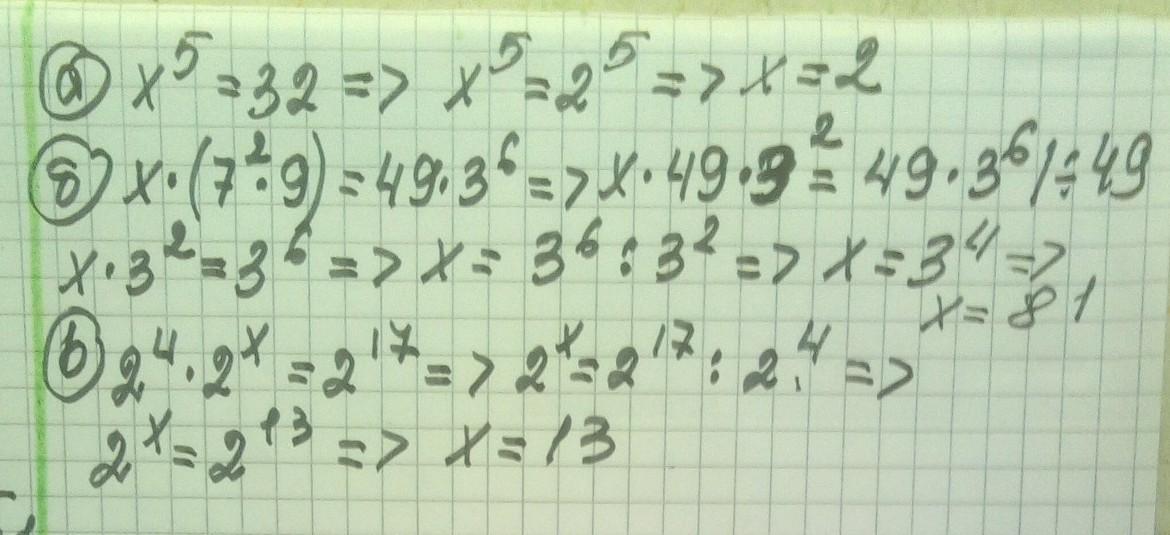 а) x⁵ = 32 => x⁵ = 2⁵ => x = 2
б) x · (7² · 9) = 49 · 3⁶ => x · 49 · 3² = 49 · 3⁶ | ÷ 49
x · 3² = 3⁶ => x = 3⁶ : 3² => x = 3⁴ =>
x = 81
в) 2⁴ · 2ˣ = 2¹⁷ => 2ˣ = 2¹⁷ : 2⁴ =>
2ˣ = 2¹³ => x = 13